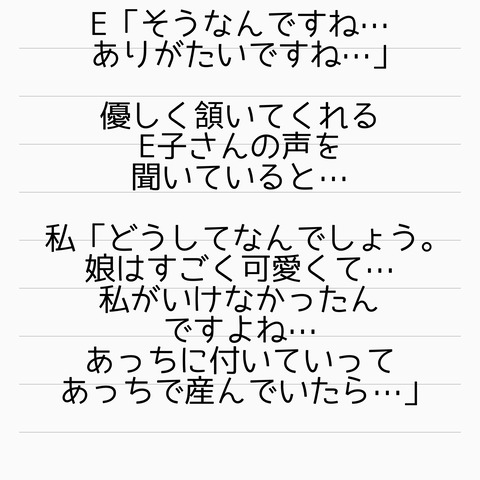 E「そうなんですね…
ありがたいですね…」
優しく頷いてくれる
E子さんの声を
聞いていると…
私「どうしてなんでしょう。
娘はすごく可愛くて…
私がいけなかったん
ですよね…
あっちに付いていって
あっちで産んでいたら…」